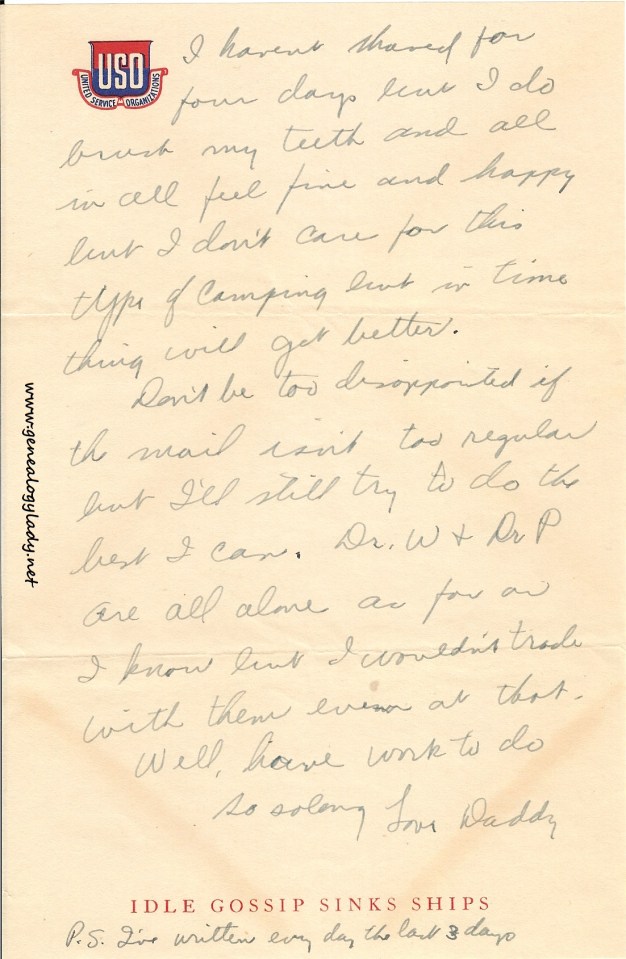 USO
UNITED SERVICE ORGANIZATIONS
I havent shaved for
four days but I do
brush my teeth and all
in all feel fine and happy
but I don't care for this
type of camping but in time
thing will get better.
Don't be too disappointed if
the mail isn't too regular
but I'll still try to do the
best I can. Dr. W & Dr P
are all alone as far as
I know but I wouldn't trade
with them even at that.
Well, have work to do
so solong Love Daddy
IDLE GOSSIP SINKS SHIPS
P.S. I've written every day the last 3 days
www.genealogylady.net